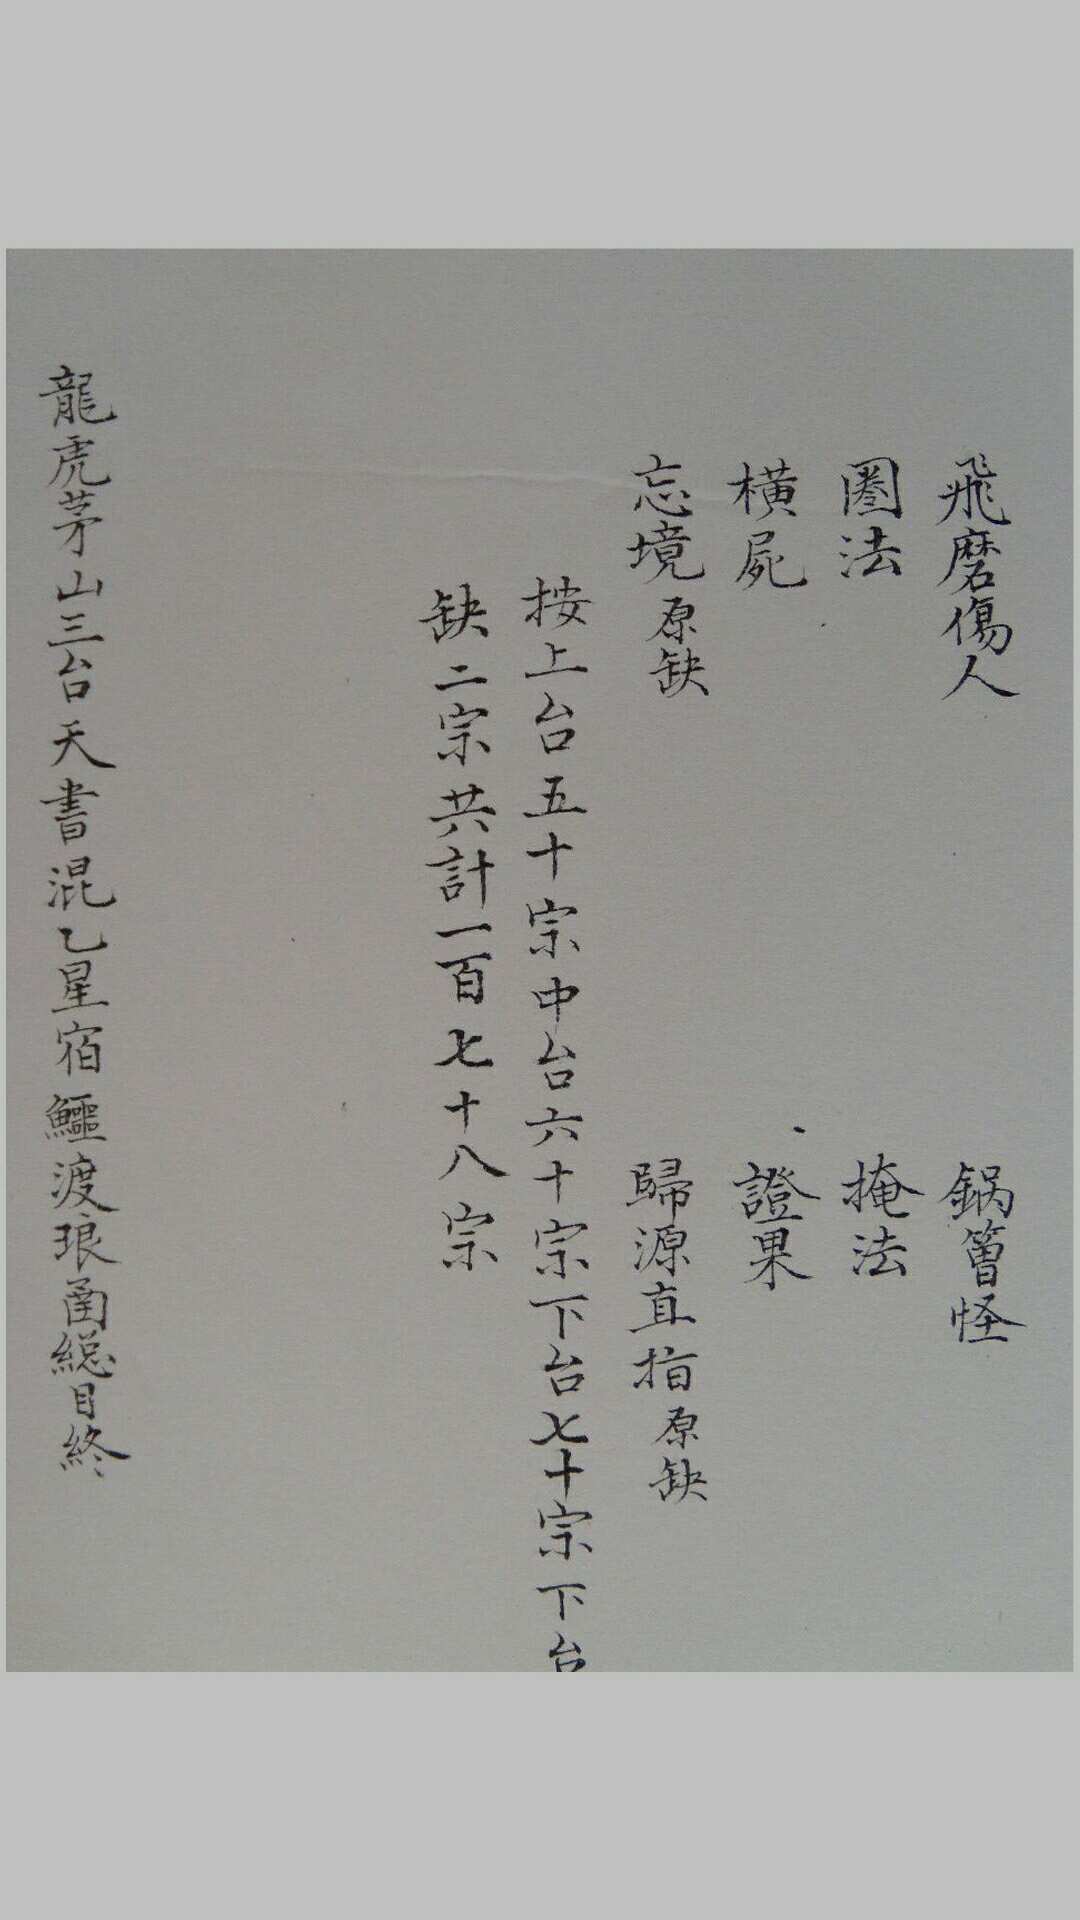 飛磨傷人　鍋曾怪
圈法　掩法
橫屍　證果
忘境原缺　歸源直指原缺
按上台五十宗中台六十宗下台七十宗下台
缺二宗共計一百七十八宗
龍虎茅山三台天書混乙星宿鱷渡琅函總目終